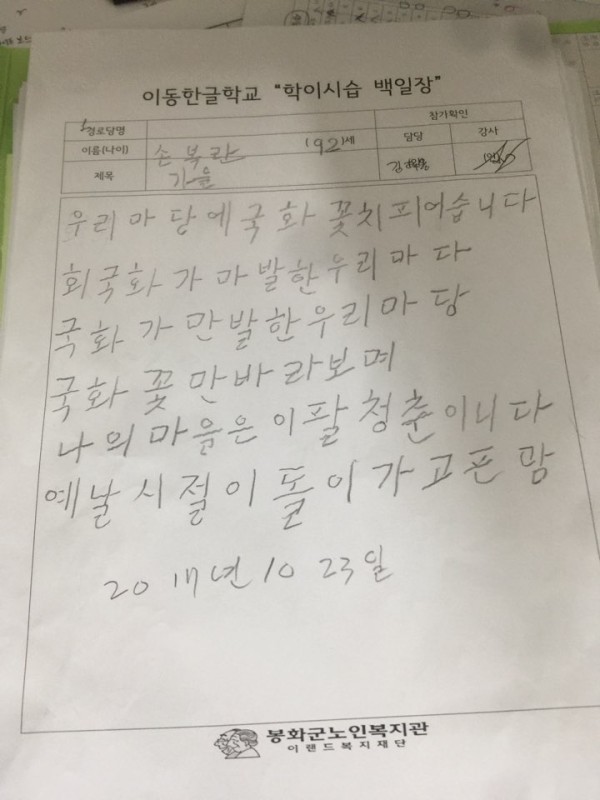 이동한글학교 "학이시습 백일장"
경로당명
참가확인
이름(나이) 손부란 (92)세
담당 강사
제목 가을
우리마당에국화꽃치피어습니다
회국화가마발한우리마다
국화가만발한우리마당
국화꽃만바라보며
나의마을은이팔청춘이니다
예날시절이돌이가고픈맘
20 년 10 23일
봉화군노인복지관
이랜드복지재단